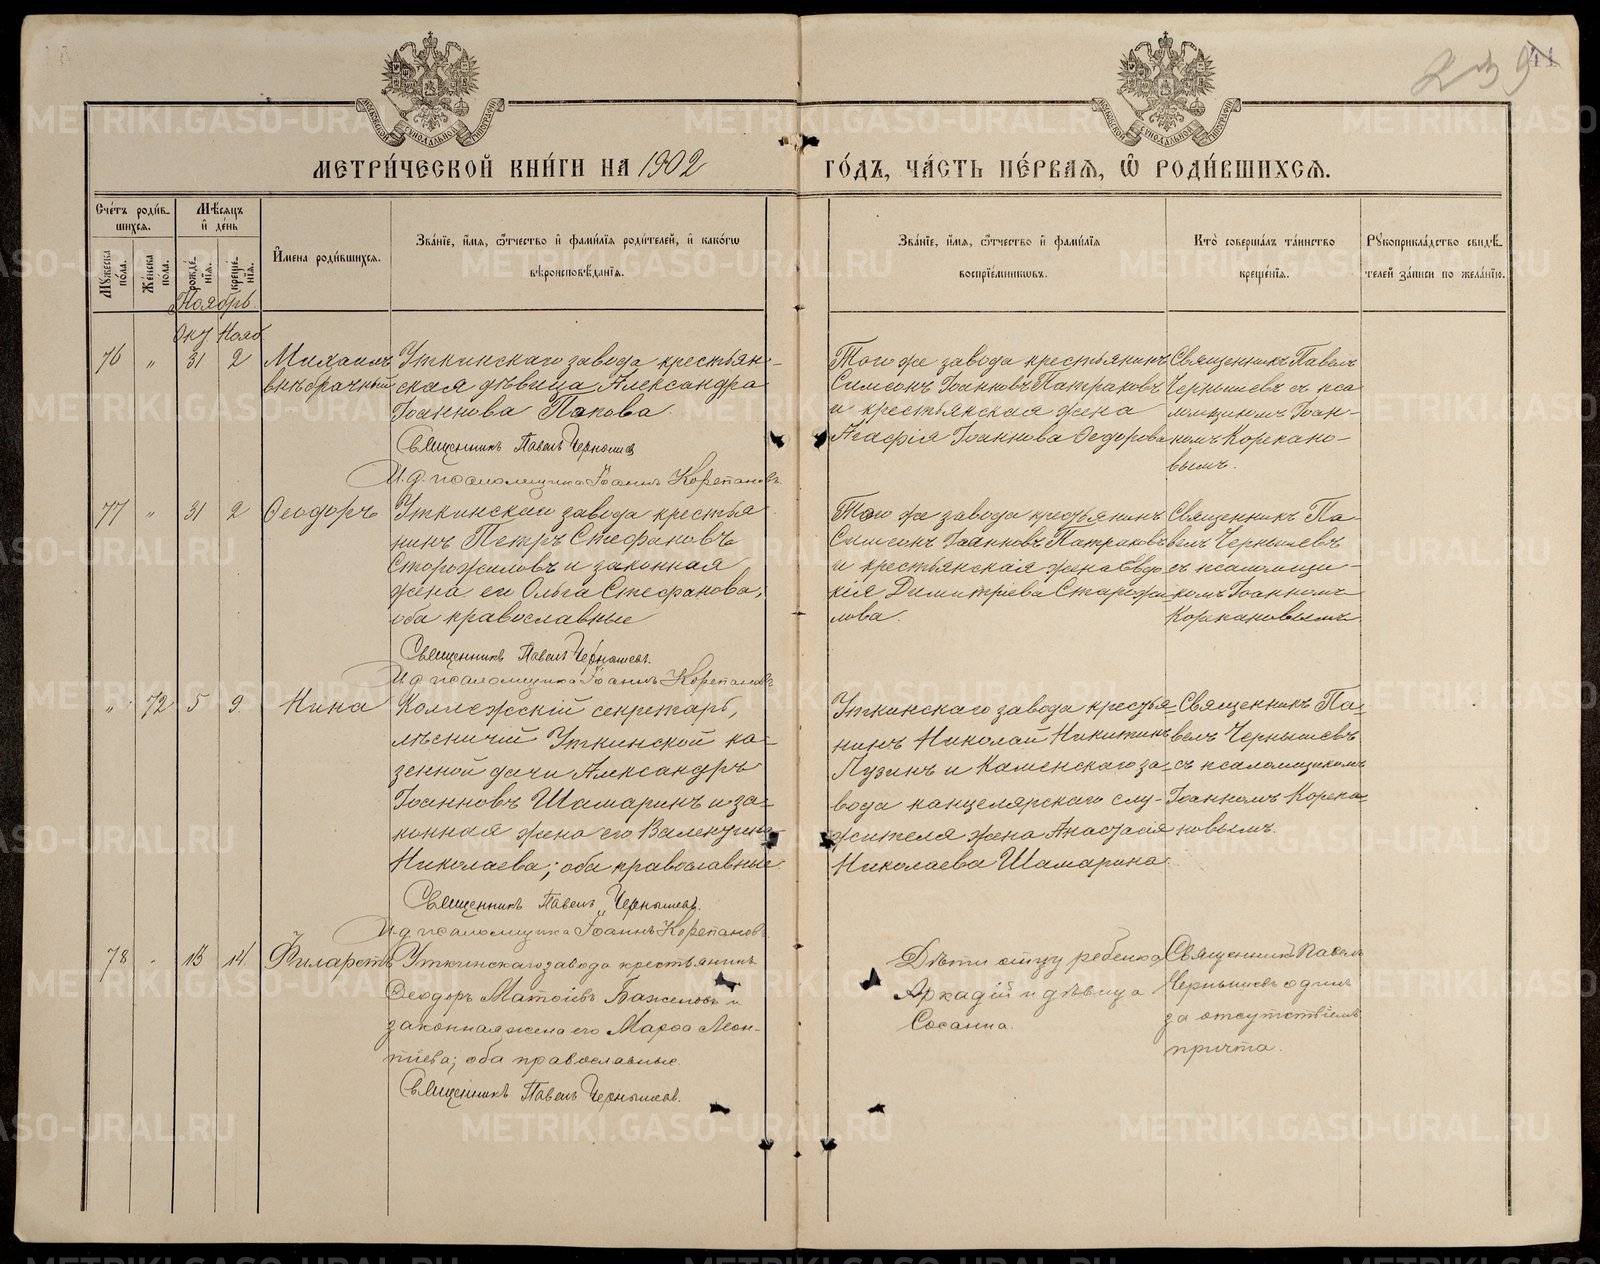 239
МЕТРИ́ЧЕСКОЙ КНИ́ГИ НА 1902 ГО́ДЪ, ЧА́СТЬ ПЕ́РВАѦ, Ѿ РОДИ́ВШИХСѦ.
Счетъ роди́вшихсѧ.
Мужеска по́ла.
Женска пола.
Мѣсѧцъ и де́нь
рожде́нїѧ.
креще́нїѧ.
И́мена роди́вшихсѧ.
Зва́нїе, и́мѧ, ѻ́тчество и фами́лїѧ роди́телей, и како́гѡ вѣроисповѣ́данїѧ.
Зва́нїе, и́мѧ, ѻ́тчество и фами́лїѧ воспрїе́мниковъ.
Кто̀ соверша́лъ та́инство креще́нїѧ.
Рꙋкоприкла́дство свидѣ́телей за́писи по жела́нїю.
Ноябрь.
Окт Нояб
76 " 31 2
Михаилъ
внѣбрачный
Уткинскаго завода крестьян-
ская дѣвица Александра
Іоаннова Попова
Священникъ Павелъ Чернышев
И.д. псаломщика Іоаннъ Корепановъ.
Того же завода крестьянинъ
Симеонъ Іоанновъ Патраковъ
и крестьянская жена
Агафія Іоаннова Федорова
Священникъ Павелъ
Чернышевъ съ пса
ломщикомъ Іоан-
номъ Корепано-
вымъ.
77 " 31 2
Феодоръ
Уткинскаго завода крестья
нинъ Петръ Стефановъ
Сторожиловъ и законная
жена его Ольга Стефанова,
оба православные
Священникъ Павелъ Чернышевъ.
И.д. псаломщика Іоаннъ Корепановъ
Того же завода крестьянинъ
Симеонъ Іоанновъ Патраковъ
и крестьянская жена Евдо
кія Димитріева Старожи
лова.
Священникъ Па-
велъ Чернышевъ
съ псаломщи-
комъ Іоанномъ
Корепановымъ
" 72 5 9.
Нина
Коллежскій секретарь,
лѣсничій Уткинской ка-
зенной дачи Александръ
Іоанновъ Шамаринъ и за-
конная жена его Валентина
Николаева; оба православные.
Священникъ Павелъ Чернышев.
И.д. псаломщика Іоаннъ Корепановъ
Уткинскаго завода крестья-
нинъ Николай Никитинъ
Пузинъ и Каменскаго за-
вода канцелярскаго слу-
жителя жена Анастасія
Николаева Шамарина
Священникъ Па-
велъ Чернышевъ
съ псаломщикомъ
Іоанномъ Корепа-
новымъ.
78 " 13 14
Филаретъ
Уткинскаго завода крестьянинъ
Феодоръ Матѳіевъ Баженовъ и
законная жена его Марѳа Леон-
тіева; оба православные.
Священникъ Павелъ Чернышев.
Дѣти отцу ребенка
Аркадій и дѣвица
Сосанна.
Священникъ Павелъ
Чернышевъ одинъ
за отсутствіемъ
причта.
METRIKI.GASO-URAL.RU